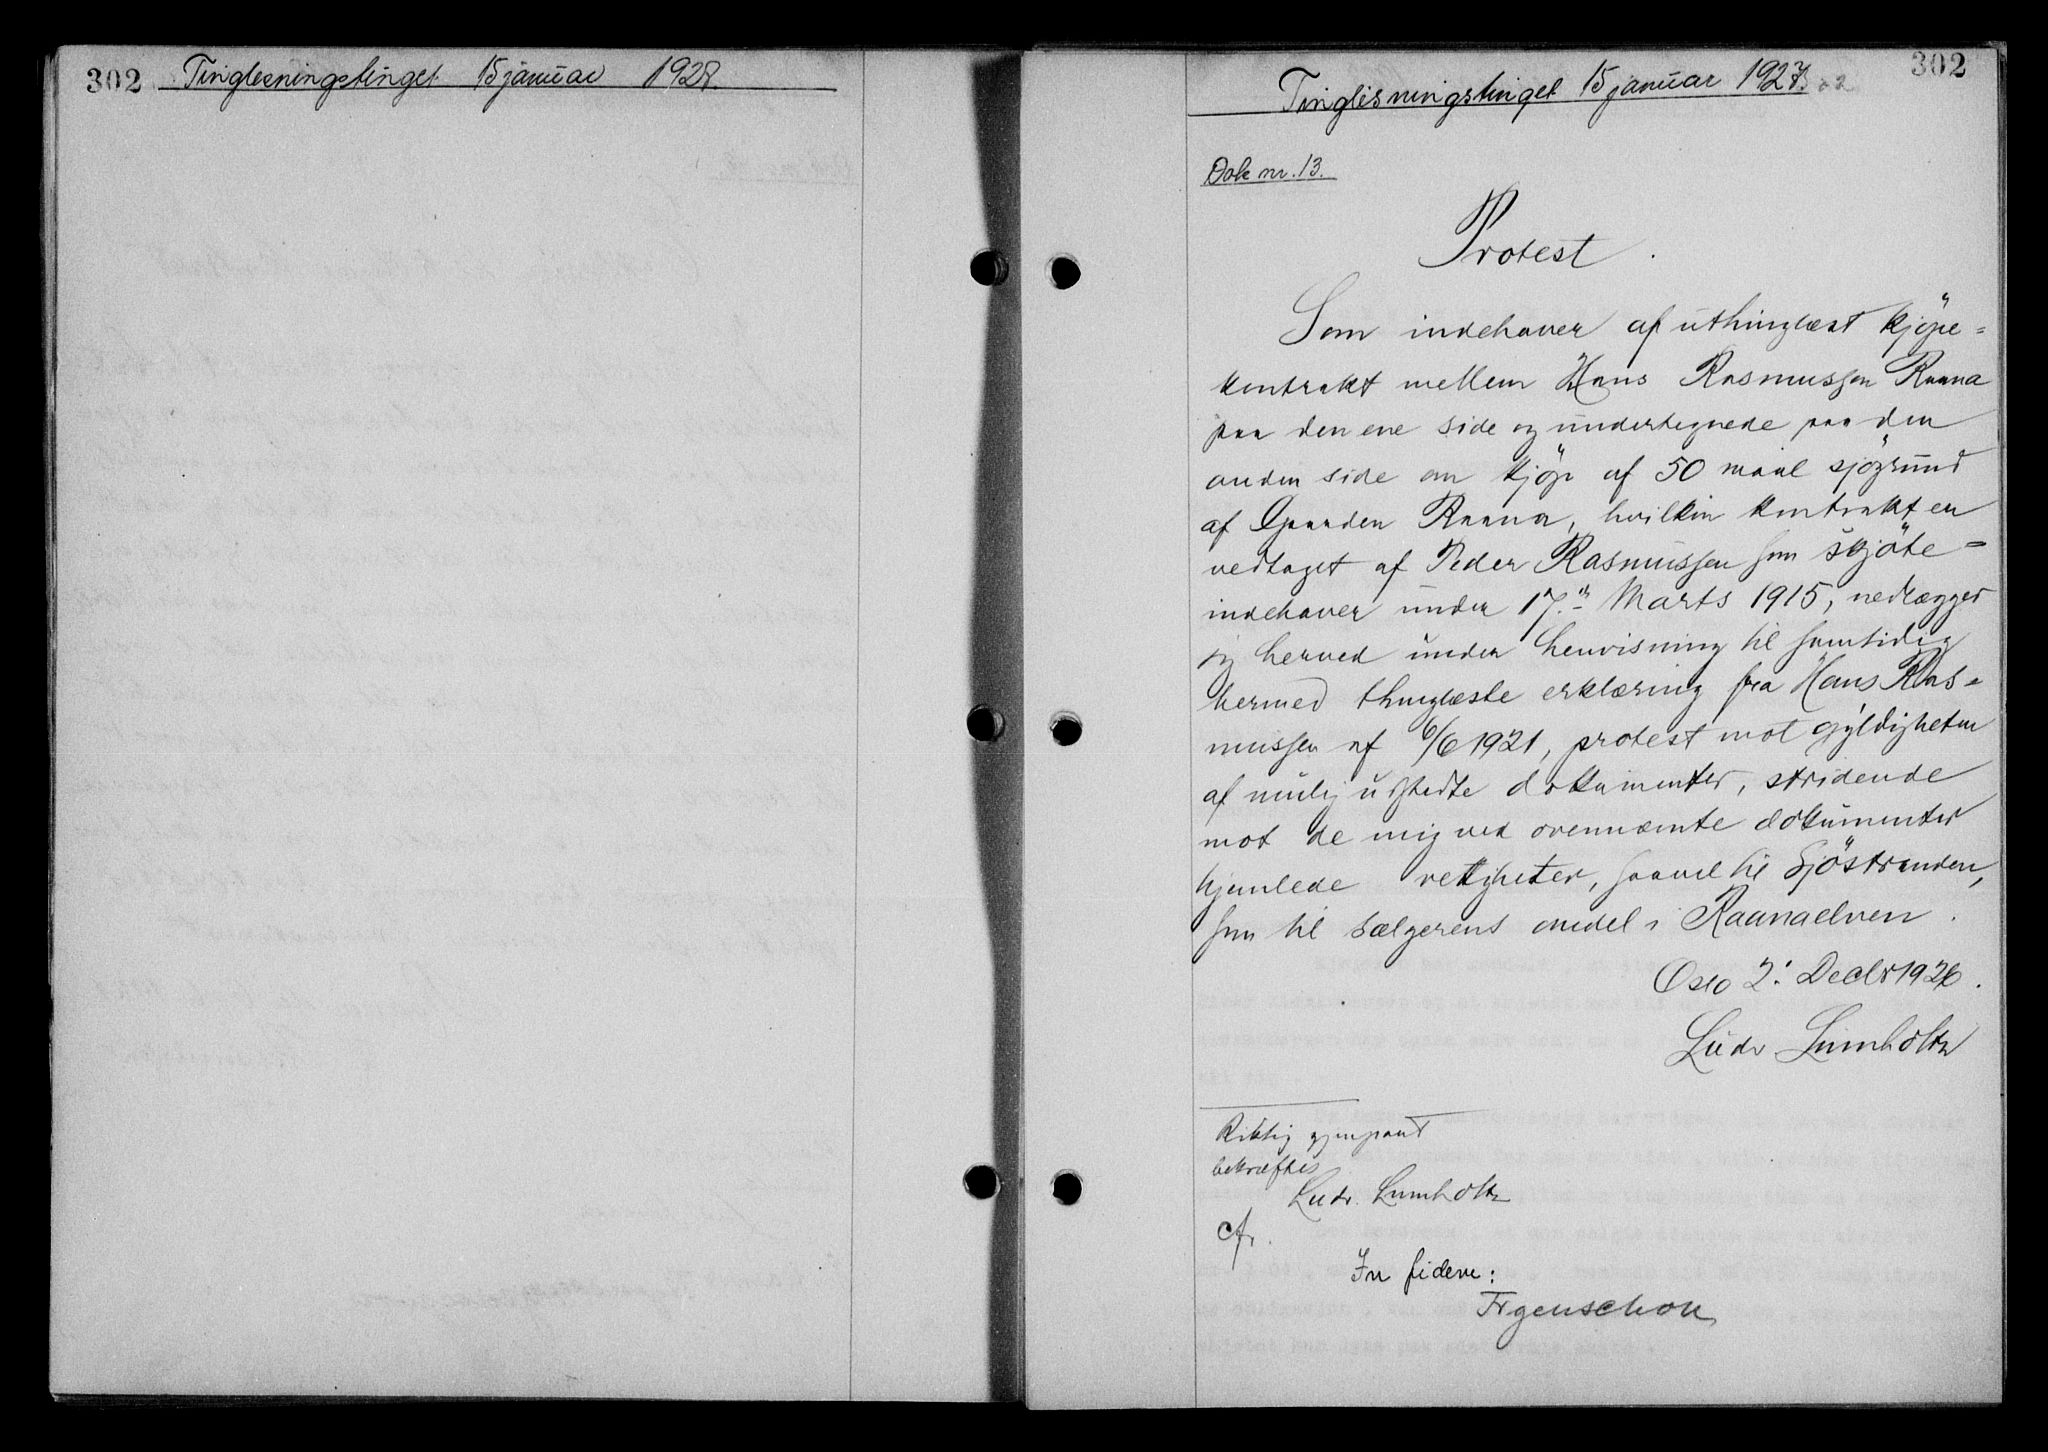 302 Tinglesningstinget 15 januar 1928.
302
Tinglesningstinget 15 januar 1927.
Dok nr. 13.
Protest.
Som indehaver af uthinglæst kjöpe=
kontrakt mellem Hans Rasmussen Raana
paa den ene side og undertegnede paa den
anden side om kjöp af 50 maal sjögrund
af Gaarden Raana, hvilken kontrakt er
vedtaget af Peder Rasmussen som skjöte=
indehaver under 17.de Marts 1915, nedlægger
jeg herved under henvisning til samtidig
hermed thinglæste erklæring fra Hans Ras=
mussen af 6/6 1921, protest mot gyldigheten
af mulig udstedte dokumenter, stridende
mot de mig ved ovennævnte dokumenter
hjemlede rettigheter, saavel til Sjöstranden,
som til sælgerens andel i Raanaelven.
Oslo 2: Decbr 1926.
Ludv Lumholtz
Riktig gjenpart
bekræftes
Ludv. Lumholtz
cfr.
In fidem:
Irgenschou